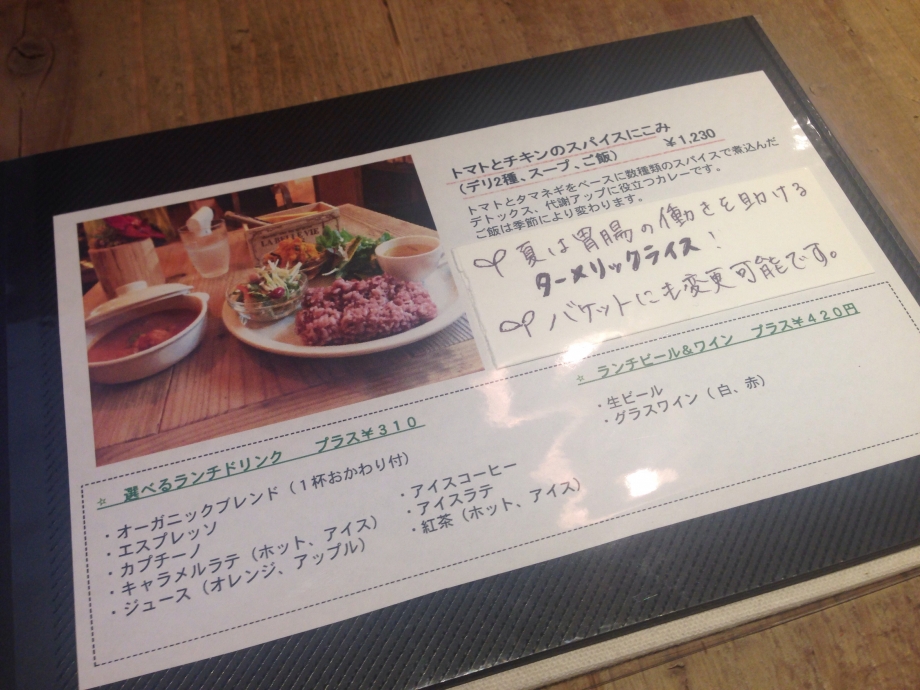 トマトとチキンのスパイスにこみ
（デリ2種、スープ、ご飯） ￥1,230
トマトとタマネギをベースに数種類のスパイスで煮込んだ
デトックス、代謝アップに役立つカレーです。
ご飯は季節により変わります。
夏は胃腸の働きを助ける
ターメリックライス！
バケットにも変更可能です。
LA BELLE VIE
☆ ランチビール＆ワイン プラス￥４２０円
・生ビール
・グラスワイン（白、赤）
☆ 選べるランチドリンク プラス￥３１０
・オーガニックブレンド（１杯おかわり付）
・エスプレッソ
・カプチーノ
・キャラメルラテ（ホット、アイス）
・ジュース（オレンジ、アップル）
・アイスコーヒー
・アイスラテ
・紅茶（ホット、アイス）